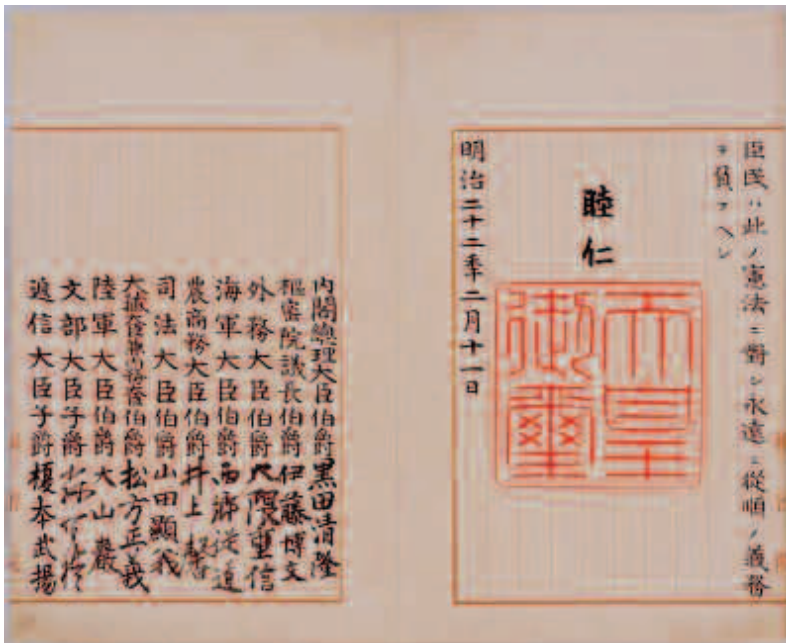 臣民ハ此ノ憲法ニ對シ永遠ニ從順ノ義務
ヲ負フヘシ
睦仁
天皇
御璽
明治二十二年二月十一日
内閣總理大臣伯爵黒田清隆
樞密院議長伯爵伊藤博文
外務大臣伯爵大隈重信
海軍大臣伯爵西郷従道
農商務大臣伯爵井上馨
司法大臣伯爵山田顯義
大蔵大臣兼内務大臣伯爵松方正義
陸軍大臣伯爵大山巖
文部大臣子爵
遞信大臣子爵榎本武揚